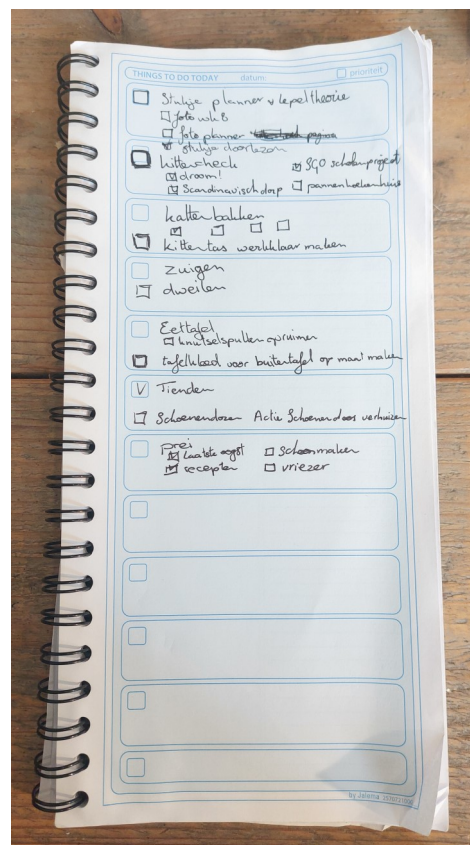 THINGS TO DO TODAY datum: prioriteit
Stukje planner & lepeltheorie
foto wk 8
foto planner
stukje doorlezen
kittencheck SGO scholenproject
droom!
Scandinavisch dorp pannenkoekenhuis
kattenbakken
kittentas werkklaar maken
zuigen
dweilen
Eettafel
knutselspullen opruimen
tafelkleed voor buitentafel op maat maken
V Tienden
Schoenendozen Actie Schoenendoos verhuizen
prei
laatste oogst schoonmaken
recepten vriezer
by Jalema